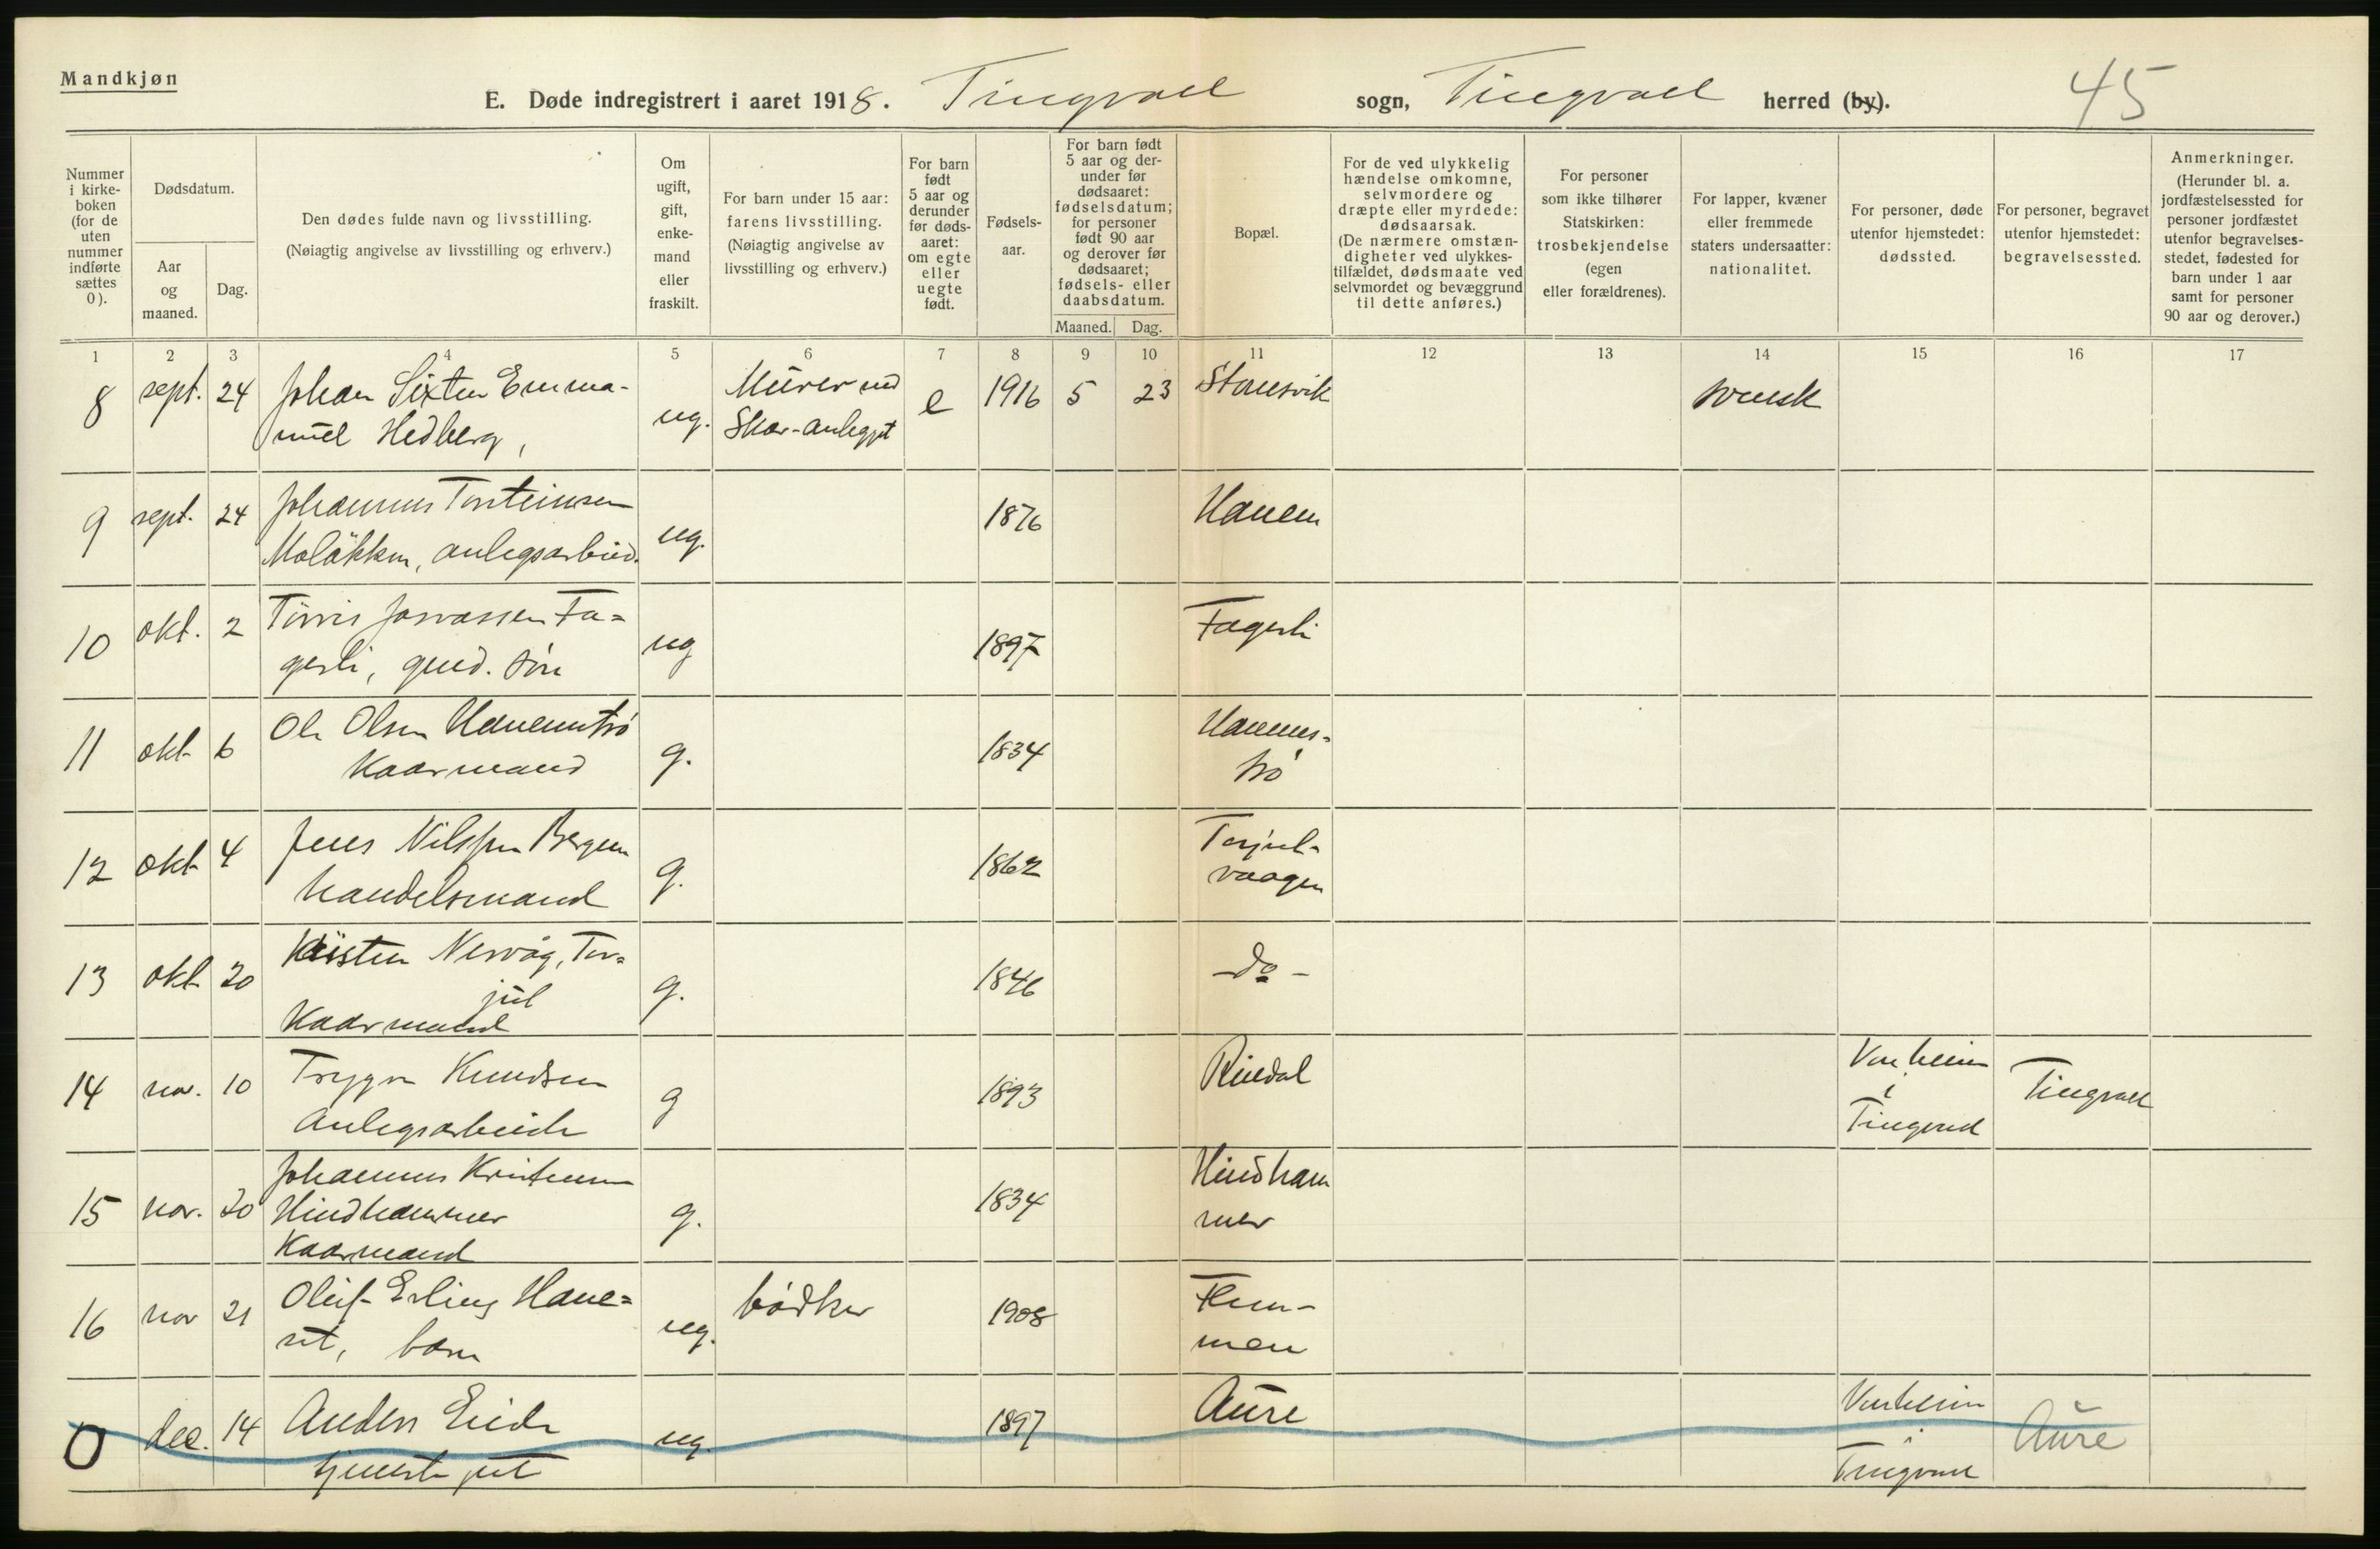 Mandkjøn
E. Døde indregistrert i aaret 1918. Tingvoll sogn, Tingvoll herred (by).
45
Nummer i kirke-boken (for de uten nummer indførte sættes 0).
Dødsdatum.
Aar og maaned.
Dag.
Den dødes fulde navn og livsstilling.
(Nøiagtig angivelse av livsstilling og erhverv.)
Om ugift, gift, enke-mand eller fraskilt.
For barn under 15 aar: farens livsstilling. (Nøiagtig angivelse av livsstilling og erhverv.)
For barn født 5 aar og derunder før døds-aaret: om egte eller uegte født.
Fødsels-aar.
For barn født 5 aar og der-under før dødsaaret: fødselsdatum; for personer født 90 aar og derover før dødsaaret; fødsels- eller daabsdatum.
Maaned. Dag.
Bopæl.
For de ved ulykkelig hændelse omkomne, selvmordere og dræpte eller myrdede: dødsaarsak. (De nærmere omstæn-digheter ved ulykkes-tilfældet, dødsmaate ved selvmordet og bevæggrund til dette anføres.)
For personer som ikke tilhører Statskirken: trosbekjendelse (egen eller forældrenes).
For lapper, kvæner eller fremmede staters undersaatter: nationalitet.
For personer, døde utenfor hjemstedet: dødssted.
For personer, begravet utenfor hjemstedet: begravelsessted.
Anmerkninger. (Herunder bl. a. jordfæstelsessted for personer jordfæstet utenfor begravelses-stedet, fødested for barn under 1 aar samt for personer 90 aar og derover.)
1 2 3 4 5 6 7 8 9 10 11 12 13 14 15 16 17
8 sept. 24 Johan Sixten Emma-
nuel Hedberg, ug. Murer ved
Skar-anlegget e 1916 5 23 Stensvik svensk
9 sept. 24 Johannes Torsteinsen
anlegsarbeid. ug. 1876 Hanem
10 okt. 2 Fa-
gerli, gmd. søn ug 1897 Fagerli
11 okt. 6 Ole Olsen Hanemstrø
Kaarmand g. 1834 Hanems-
trø
12 okt 4 Jens Nilssen Bergem
handelsmand g. 1862 Torjul-
vaagen
13 okt 20 Kristen Nervåg, Tor-
jul
Kaarmand g. 1846 - do -
14 nov. 10 Trygve Knudsen
Anlegsarbeide g 1893 Rindal
i
Tingvoll Tingvoll
15 nov. 20 Johannes Kristensen
Hindhammer
Kaarmand g. 1834 Hindham
mer
16 nov 21 Oluf Erling Hane-
set, barn ug. bødker 1908 Flem-
men
0 dec. 14 Anders Eide
ug. 1897 Aure
i
Tingvoll Aure